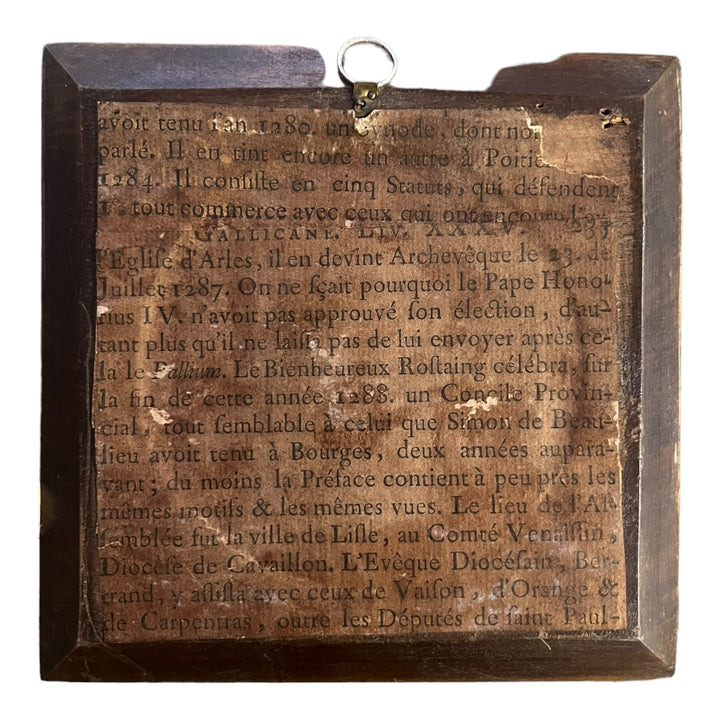 avoit tenu l'an 1280. un Synode, dont non
parlé. Il en tint encore un autre à Poitie
1284. Il consiste en cinq Statuts, qui défendent
1°. tout commerce avec ceux qui ont encouru l'
GALLICANE. LIV. XXXV. 235
l'Eglise d'Arles, il en devint Archevêque le 23. de
Juillet 1287. On ne sçait pourquoi le Pape Hono-
rius IV. n'avoit pas approuvé son élection, d'au-
tant plus qu'il ne laissa pas de lui envoyer après ce-
la le Pallium. Le Bienheureux Rostaing célébra, sur
la fin de cette année 1288. un Concile Provin-
cial, tout semblable à celui que Simon de Beau-
lieu avoit tenu à Bourges, deux années aupara-
vant; du moins la Préface contient à peu près les
mêmes motifs & les mêmes vues. Le lieu de l'As-
semblée fut la ville de Lisle, au Comté Venaissin,
Diocèse de Cavaillon. L'Evêque Diocésain, Ber-
trand, y assista avec ceux de Vaison, d'Orange &
de Carpentras, outre les Députés de saint Paul-